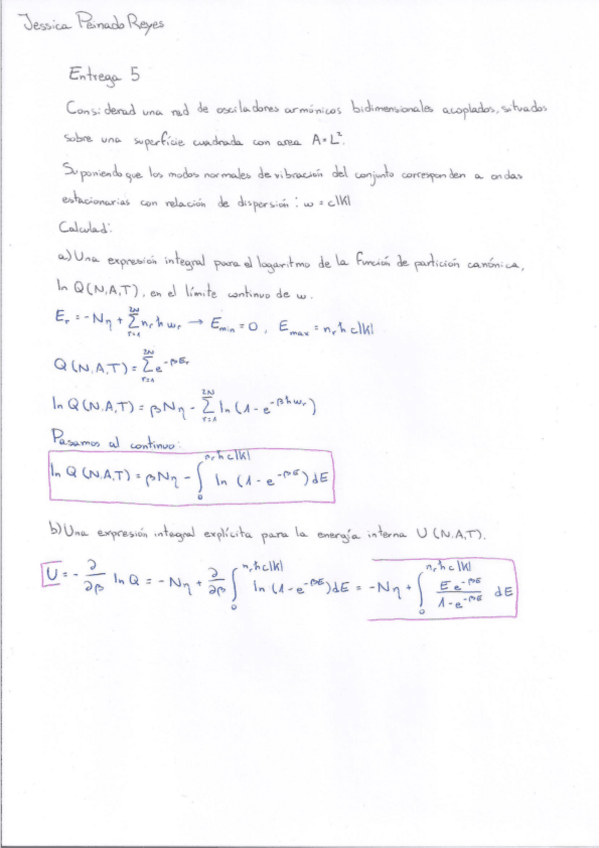 Jessica Peinado Reyes
Entrega 5
Considerad una red de osciladores armónicos bidimensionales acoplados, situados
sobre una superfície cuadrada con area A=L².
Suponiendo que los modos normales de vibración del conjunto corresponden a ondas
estacionarias con relación de dispersión: ω = c|K|
Calculad:
a) Una expresión integral para el logaritmo de la función de partición canónica,
ln Q(N,A,T), en el límite continuo de ω.
E_r = -Nη + Σ_{r=1}^{2N} n_r ħ ω_r → E_min = 0, E_max = n_r ħ c|K|
Q(N,A,T) = Σ_{r=1}^{2N} e^{-βE_r}
ln Q(N,A,T) = βNη - Σ_{r=1}^{2N} ln (1 - e^{-βħω_r})
Pasamos al continuo:
ln Q(N,A,T) = βNη - ∫_0^{n_r ħ c|K|} ln (1 - e^{-βE}) dE
b) Una expresión integral explícita para la energía interna U(N,A,T).
U = - ∂/∂β ln Q = -Nη + ∂/∂β ∫_0^{n_r ħ c|K|} ln (1 - e^{-βE}) dE = -Nη + ∫_0^{n_r ħ c|K|} E e^{-βE} / (1 - e^{-βE}) dE